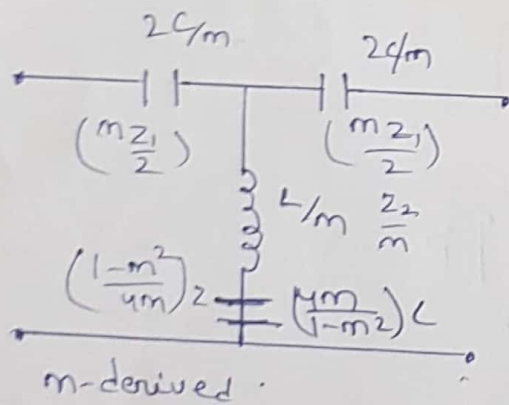 2C/m 2C/m
(mz₁/2) (mz₁/2)
L/m z₂/m
(1-m²/4m)z (4m/1-m²)C
m-derived.